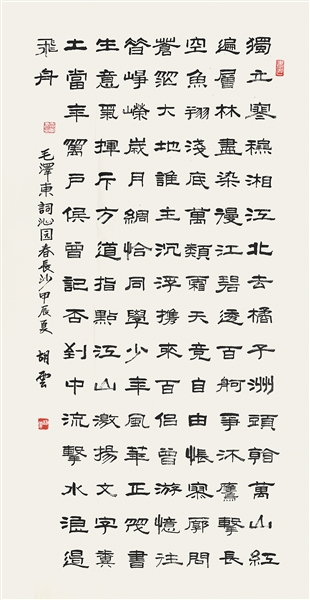 獨立寒穐湘江北去橘子洲頭看萬山紅
遍層林盡染漫江碧透百舸爭流鷹擊長
空魚翔淺底萬類霜天竟自由悵寥廓問
蒼茫大地誰主沉浮攜來百侶曾游憶往
昔崢嶸歲月稠恰同學少年風華正茂書
生意氣揮斥方遒指點江山激揚文字糞
土當年萬戶侯曾記否到中流擊水浪遏
飛舟
毛澤東詞沁园春長沙甲辰夏 胡雲